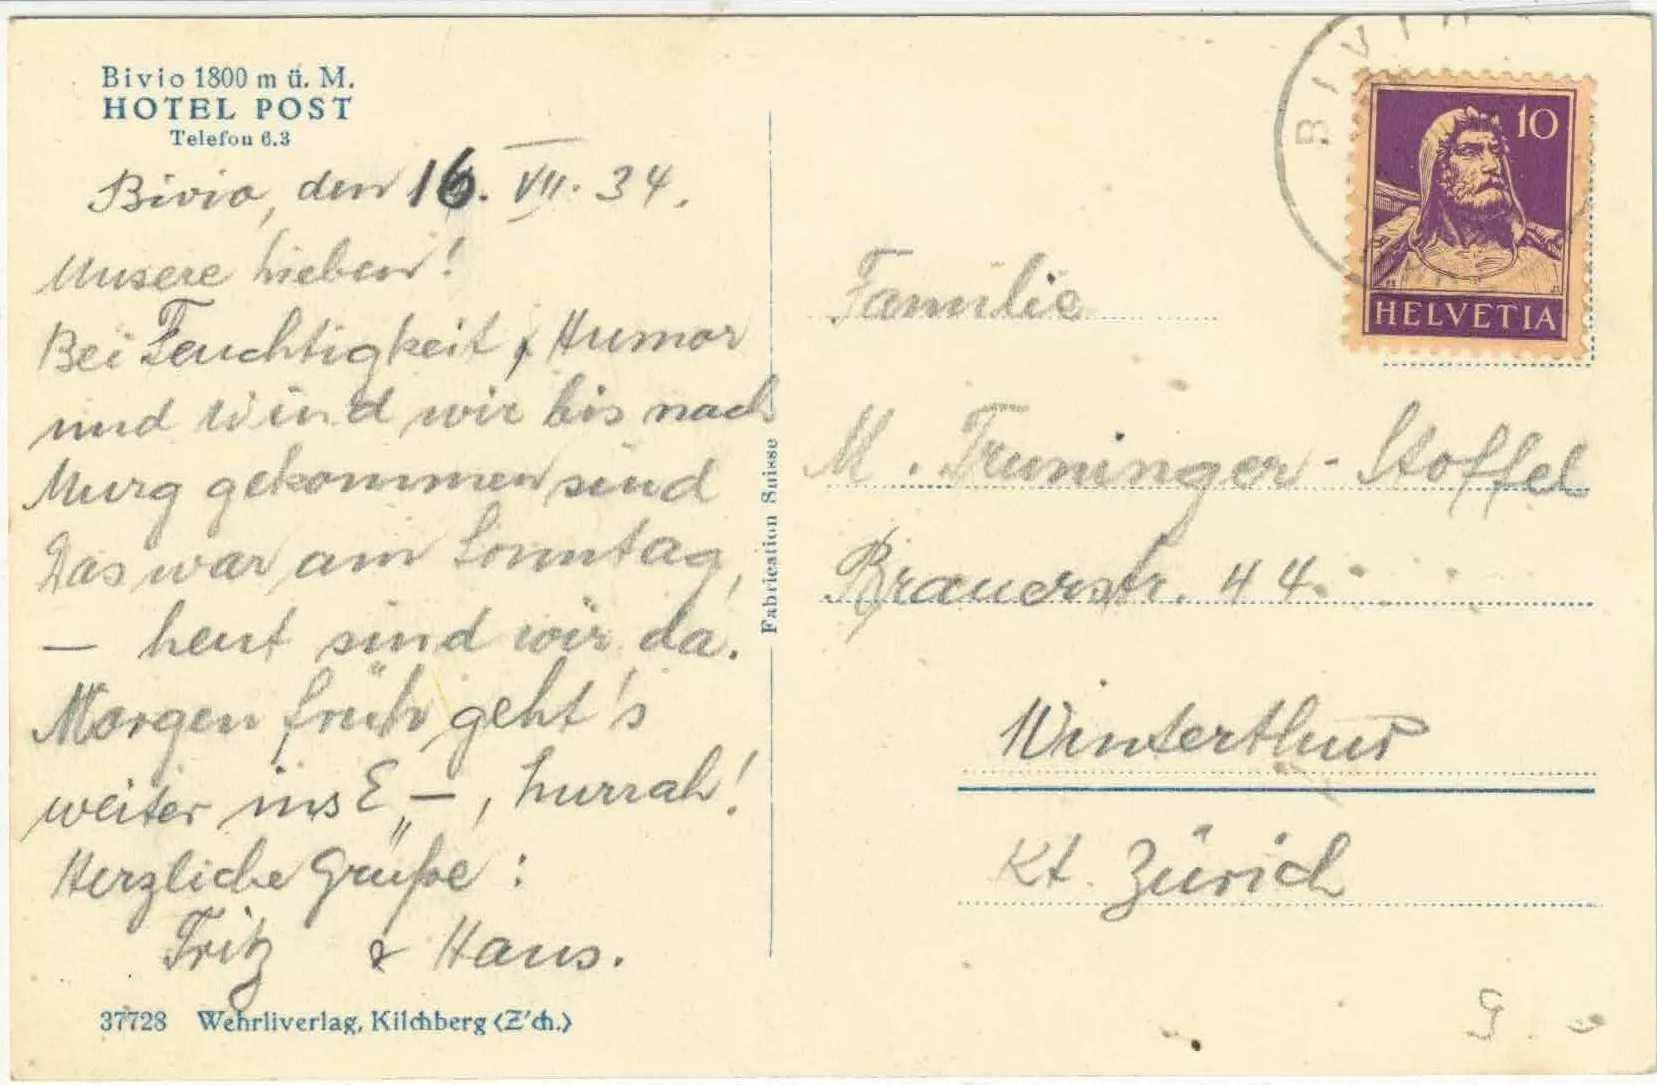 Bivio 1800 m ü. M.
HOTEL POST
Telefon 6.3
Bivio, den 16. VII. 34.
Unsere Lieben!
Bei Feuchtigkeit & Humor
und Wind wir bis nach
Murg gekommen sind
Das war am Sonntag,
— heut sind wir da.
Morgen früh geht's
weiter ins E„—, hurrah!
Herzliche Grüße:
Fritz & Hans.
37728 Wehrliverlag, Kilchberg (Z'ch.)
Fabrication Suisse
BIVIO
10
HELVETIA
Familie
M. Truninger-Stoffel
Brauerstr. 44.
Winterthur
Kt. Zürich